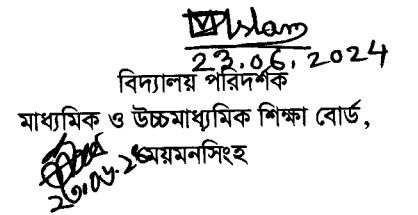 Islam
23.06.2024
বিদ্যালয় পরিদর্শক
মাধ্যমিক ও উচ্চমাধ্যমিক শিক্ষা বোর্ড,
ময়মনসিংহ